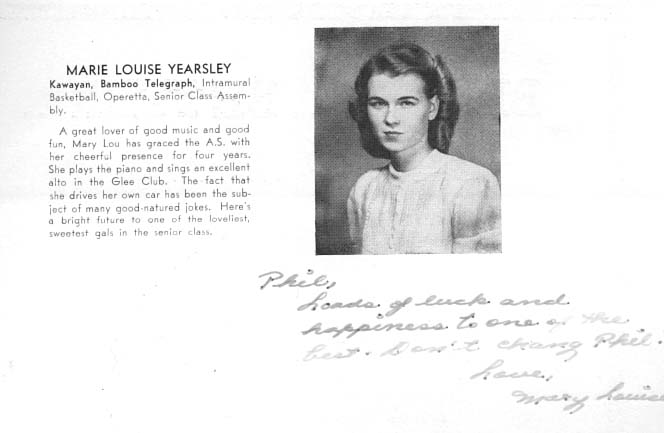 MARIE LOUISE YEARSLEY
Kawayan, Bamboo Telegraph, Intramural
Basketball, Operetta, Senior Class Assem-
bly.
A great lover of good music and good
fun, Mary Lou has graced the A.S. with
her cheerful presence for four years.
She plays the piano and sings an excellent
alto in the Glee Club. The fact that
she drives her own car has been the sub-
ject of many good-natured jokes. Here's
a bright future to one of the loveliest,
sweetest gals in the senior class.
Phil,
Loads of luck and
happiness to one of the
best. Don't chang Phil.
Love,
Mary Louise